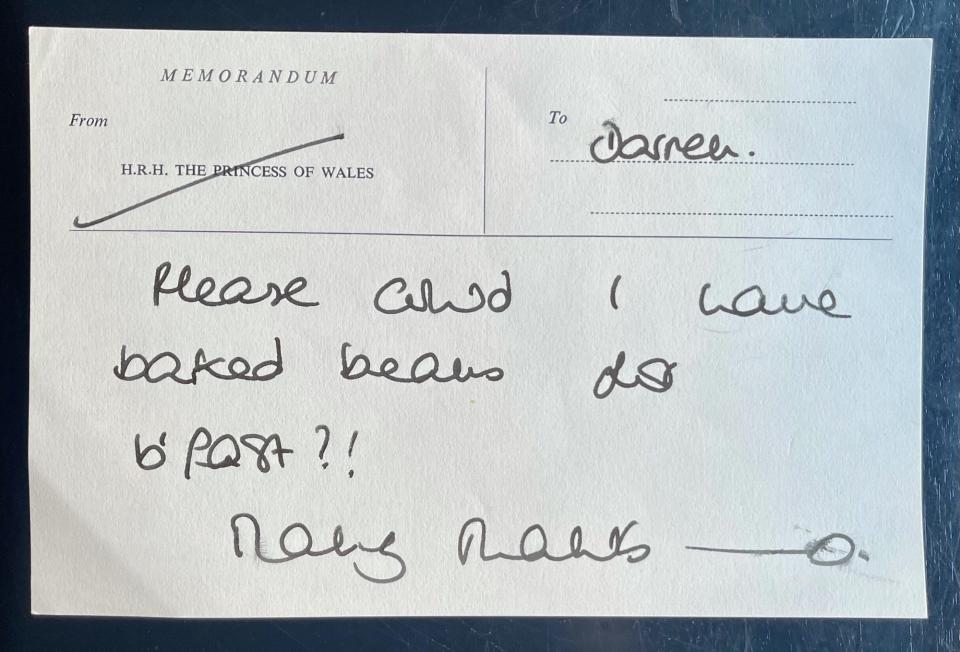 MEMORANDUM
From
H.R.H. THE PRINCESS OF WALES
To
Darren.
Please could I have
baked beans for
b'fast?!
Many thanks